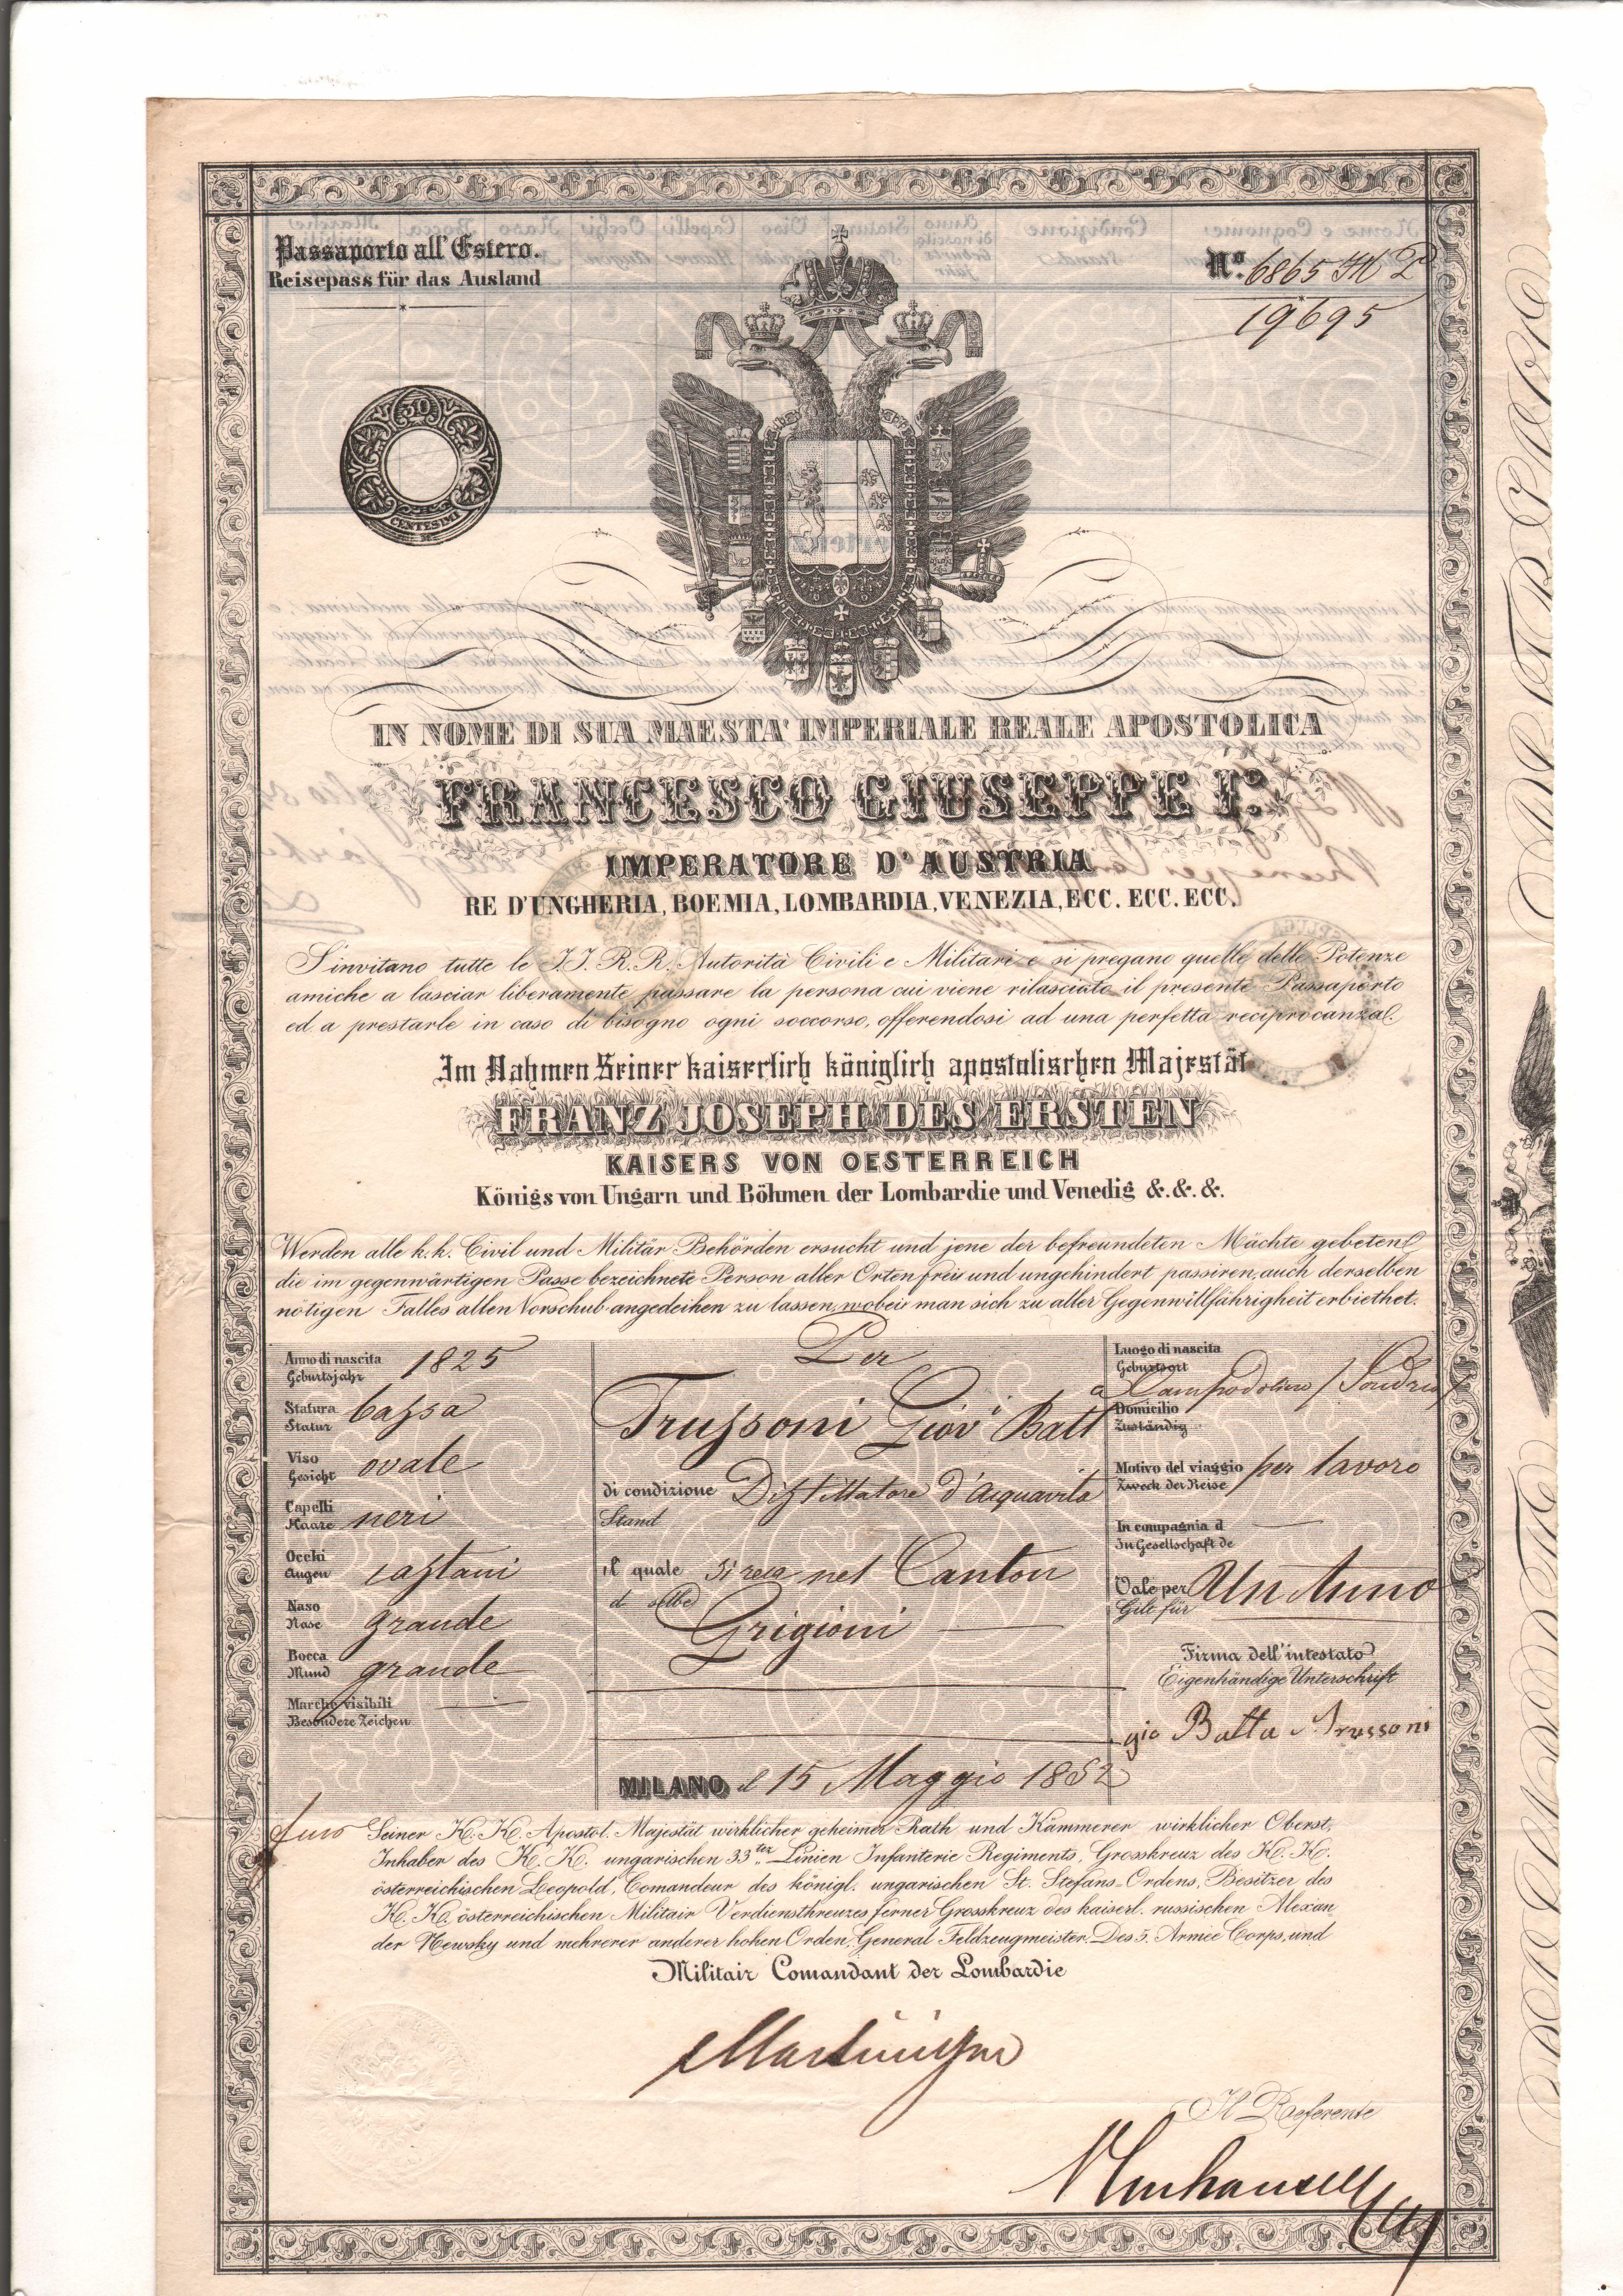 Passaporto all' Estero.
Reisepass für das Ausland
Nº. 6865
19695
30
CENTESIMI
IN NOME DI SUA MAESTA' IMPERIALE REALE APOSTOLICA
FRANCESCO GIUSEPPE Iº.
IMPERATORE D' AUSTRIA
RE D'UNGHERIA, BOEMIA, LOMBARDIA, VENEZIA, ECC. ECC. ECC.
S'invitano tutte le I.I. R.R. Autorità Civili e Militari e si pregano quelle delle Potenze
amiche a lasciar liberamente passare la persona cui viene rilasciato il presente Passaporto
ed a prestarle in caso di bisogno ogni soccorso, offerendosi ad una perfetta reciprocanza.
Im Nahmen Seiner kaiserlich königlich apostolischen Majestät
FRANZ JOSEPH DES ERSTEN
KAISERS VON OESTERREICH
Königs von Ungarn und Böhmen der Lombardie und Venedig &. &. &.
Werden alle k.k. Civil und Militär Behörden ersucht und jene der befreundeten Mächte gebeten
die im gegenwärtigen Passe bezeichnete Person aller Orten frei und ungehindert passiren, auch derselben
nötigen Falles allen Vorschub angedeihen zu lassen, wobei man sich zu aller Gegenwillfährigheit erbiethet.
Anno di nascita 1825
Geburtsjahr
Statura bassa
Statur
Viso ovale
Gesicht
Capelli neri
Haare
Occhi castani
Augen
Naso grande
Nase
Bocca grande
Mund
Marche visibili
Besondere Zeichen
Per
Trussoni Giov Batt
di condizione Distillatore d'acquavita
Stand
il quale si reca nel Canton
d selbe
Grigioni
MILANO il 15 Maggio 1852
Luogo di nascita
Geburtsort
a Campodolcino / Sondrio
Domicilio
Zuständig
Motivo del viaggio per lavoro
Zweck der Reise
In compagnia d
In Gesellschaft de
Vale per Un Anno
Gilt für
Firma dell' intestato
Eigenhändige Unterschrift
gio Batta Trussoni
Seiner K. K. Apostol. Majestät wirklicher geheimer Rath und Kämmerer wirklicher Oberst,
Inhaber des K. K. ungarischen 33ter Linien Infanterie Regiments, Grosskreuz des K. K.
österreichischen Leopold, Comandeur des königl. ungarischen St. Stefans-Ordens, Besitzer des
K. K. österreichischen Militair Verdiensthreuzes ferner Grosskreuz des kaiserl. russischen Alexan
der Newsky und mehrerer anderer hohen Orden, General Feldzeugmeister. Des 5. Armee Corps, und
Militair Comandant der Lombardie
Il Referente